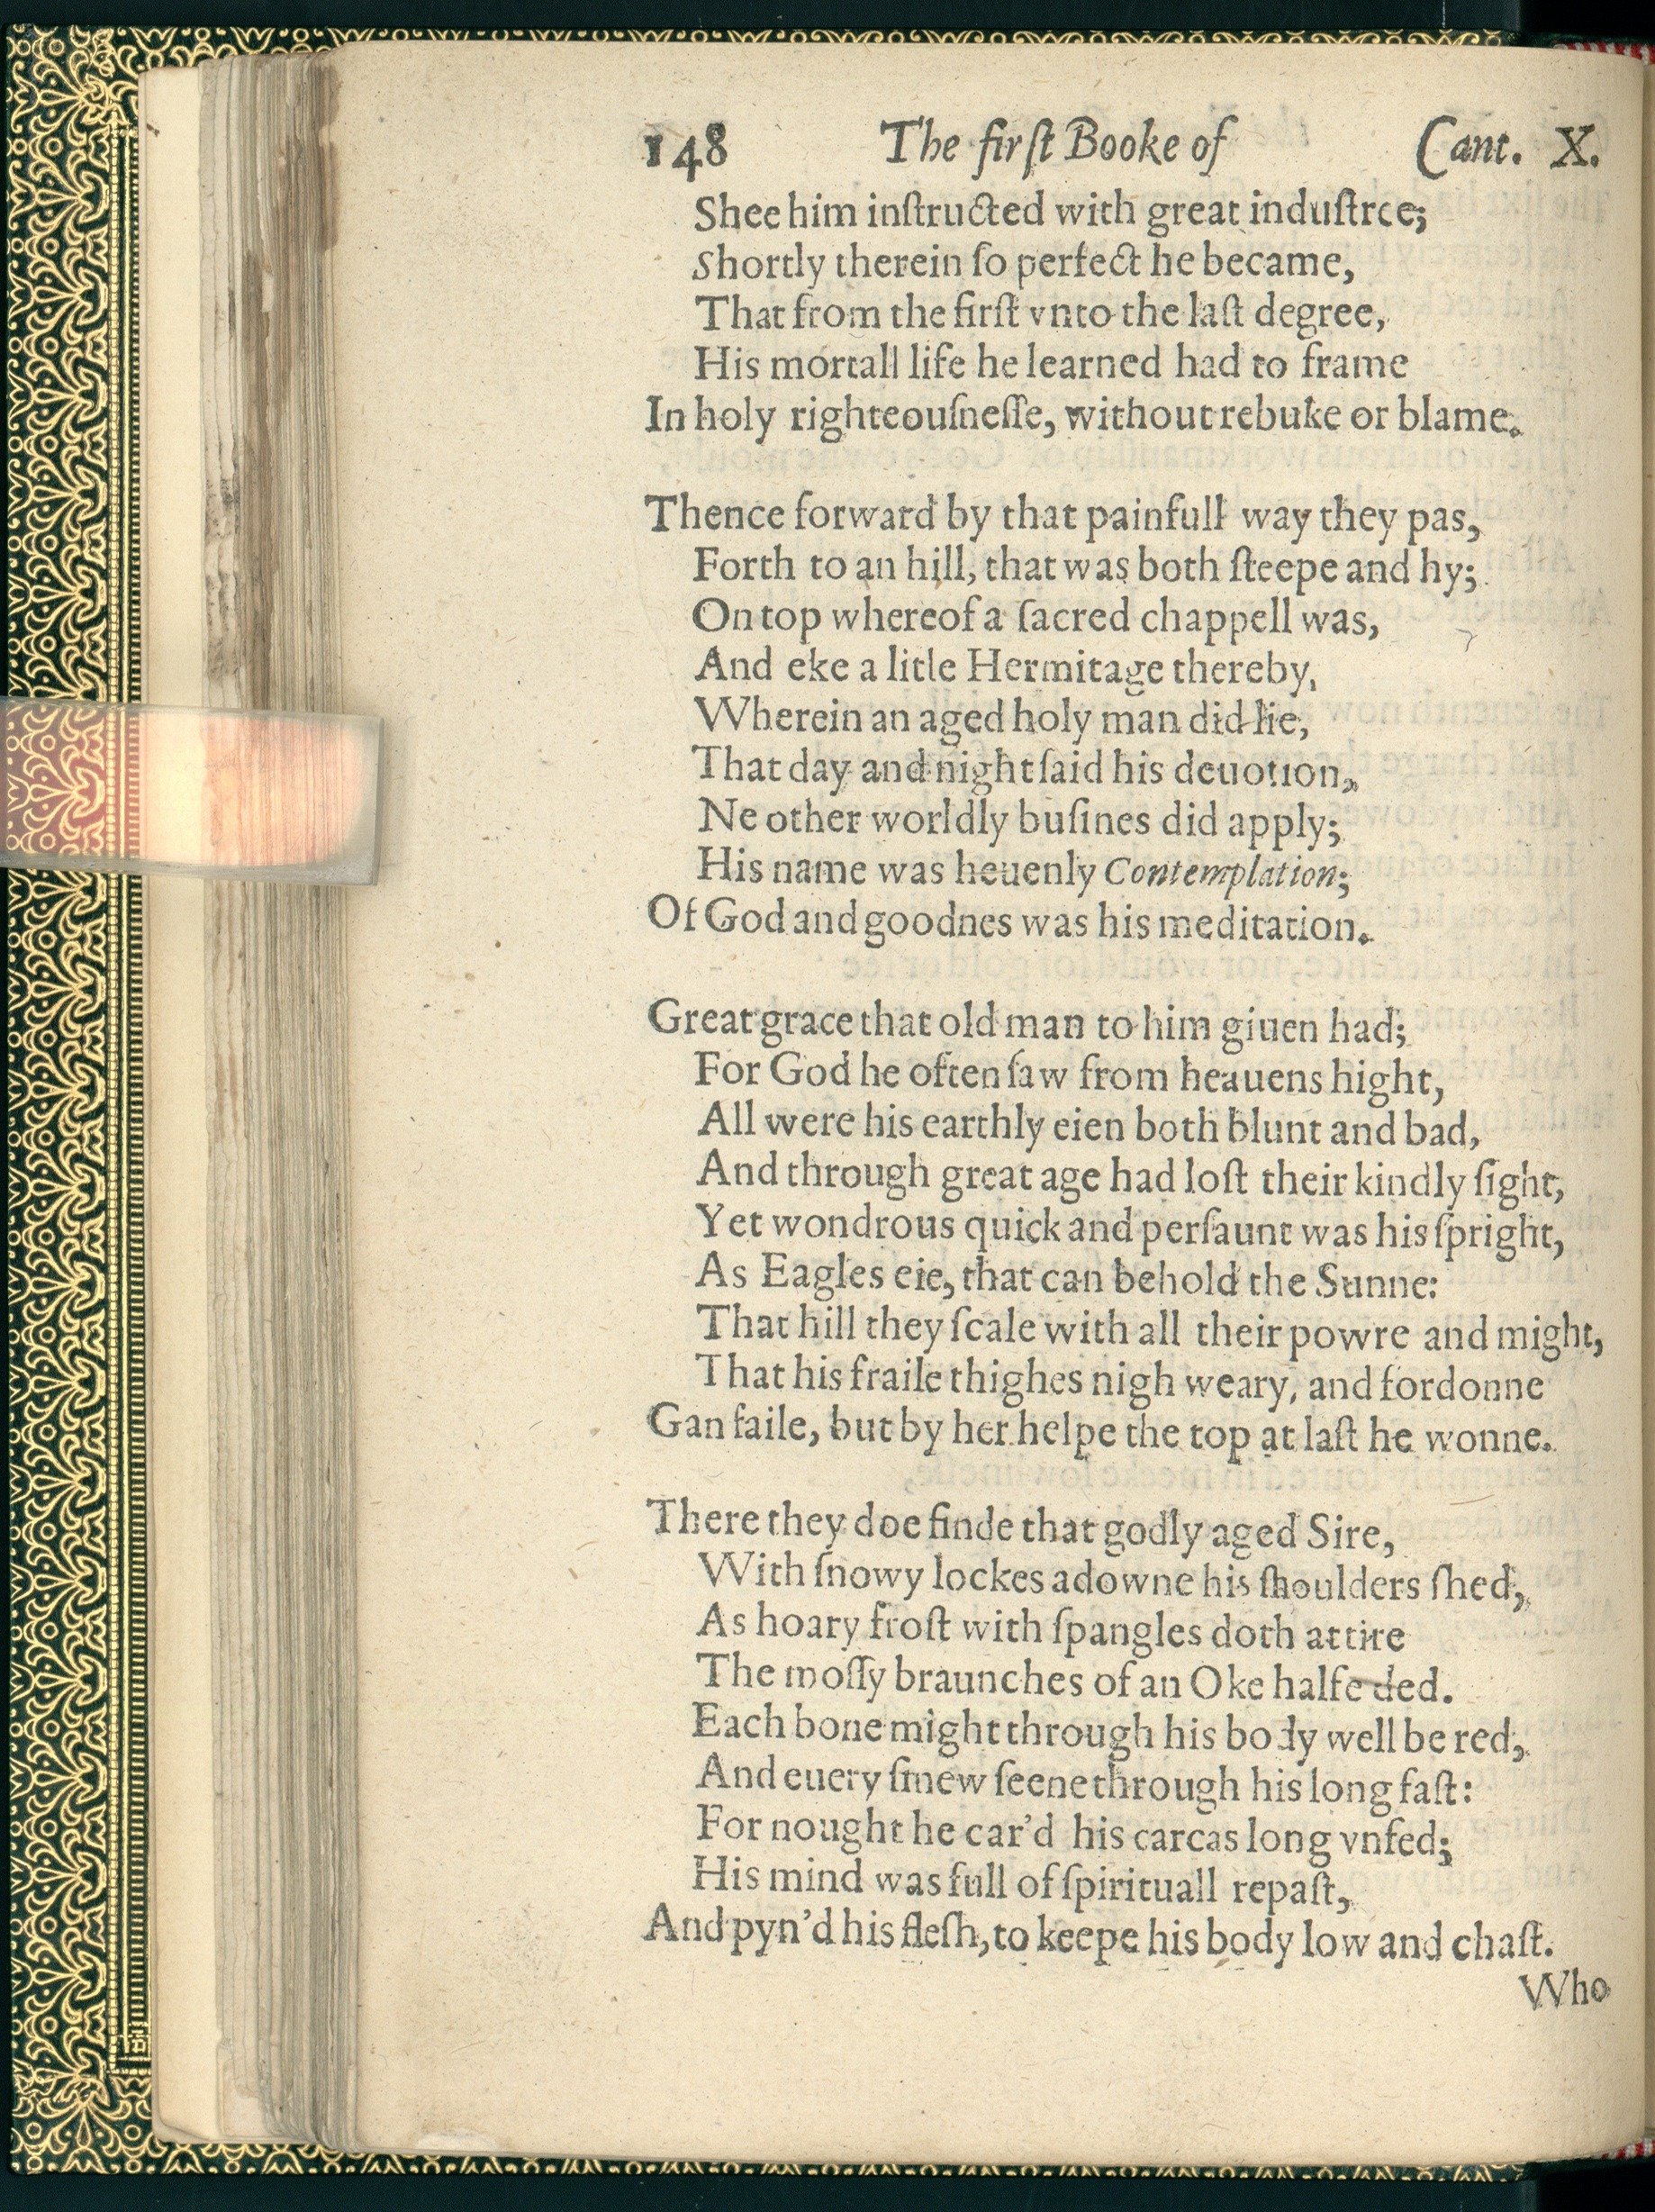 148 The firſt Booke of Cant. X.
Shee him inſtructed with great induſtree;
Shortly therein ſo perfect he became,
That from the firſt vnto the laſt degree,
His mortall life he learned had to frame
In holy righteouſneſſe, without rebuke or blame.
Thence forward by that painfull way they pas,
Forth to an hill, that was both ſteepe and hy;
On top whereof a ſacred chappell was,
And eke a litle Hermitage thereby,
Wherein an aged holy man did lie,
That day and night ſaid his deuotion,
Ne other worldly buſines did apply;
His name was heuenly Contemplation;
Of God and goodnes was his meditation.
Great grace that old man to him giuen had;
For God he often ſaw from heauens hight,
All were his earthly eien both blunt and bad,
And through great age had loſt their kindly ſight,
Yet wondrous quick and perſaunt was his ſpright,
As Eagles eie, that can behold the Sunne:
That hill they ſcale with all their powre and might,
That his fraile thighes nigh weary, and fordonne
Gan faile, but by her helpe the top at laſt he wonne.
There they doe finde that godly aged Sire,
With ſnowy lockes adowne his ſhoulders ſhed,
As hoary froſt with ſpangles doth attire
The moſſy braunches of an Oke halfe ded.
Each bone might through his body well be red,
And euery ſinew ſeene through his long faſt:
For nought he car'd his carcas long vnfed;
His mind was full of ſpirituall repaſt,
And pyn'd his fleſh, to keepe his body low and chaſt.
Who